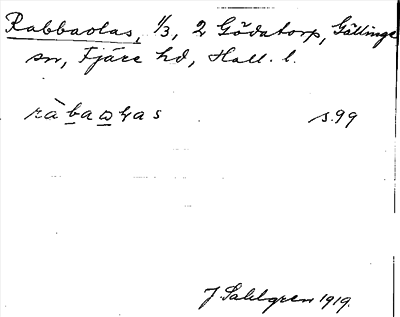 Rabbaolas, 1/3, 2 Gödatorp, Gällinge
sn, Fjäre hd, Hall. l.
s. 99
J Sahlgren 1919.